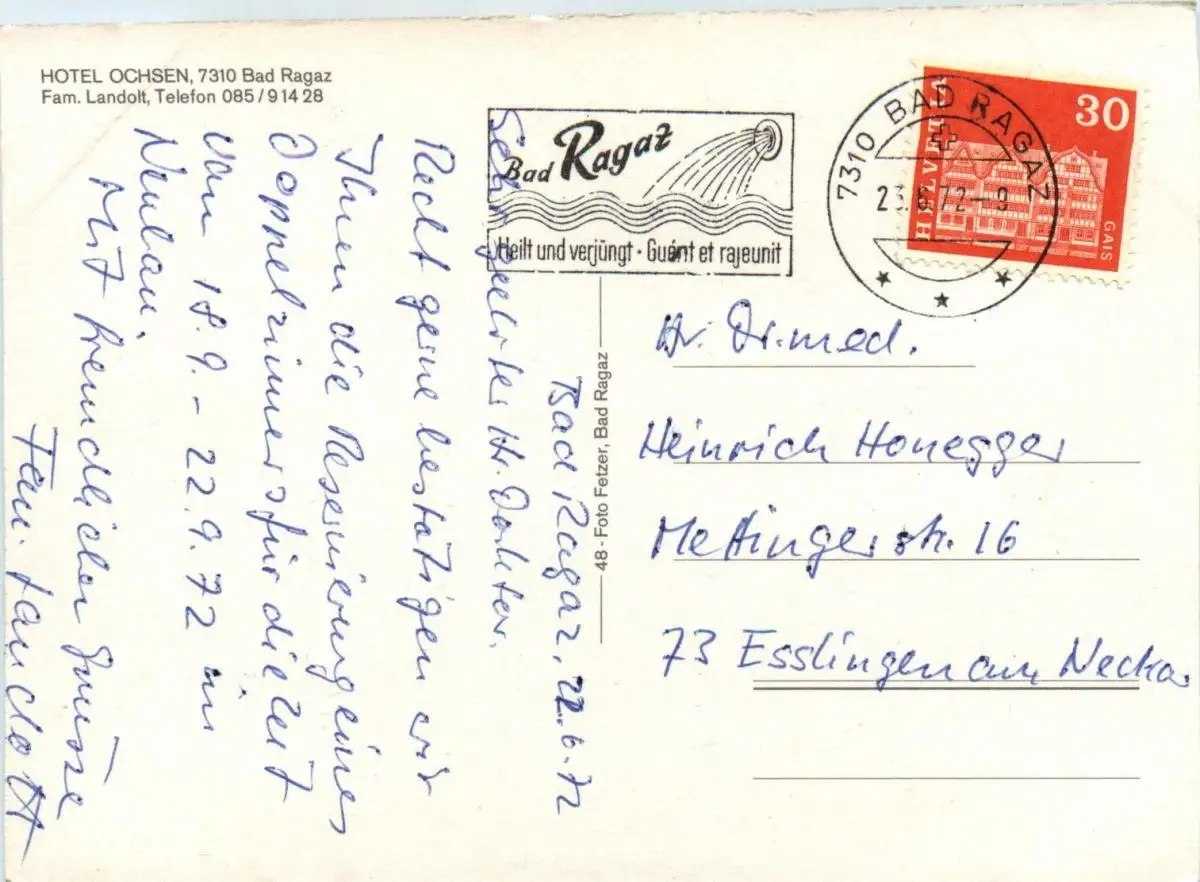 HOTEL OCHSEN, 7310 Bad Ragaz
Fam. Landolt, Telefon 085/9 14 28
Bad Ragaz
Heilt und verjüngt · Guérit et rajeunit
7310 BAD RAGAZ
23.6.72-9
HELVETIA
30
GAIS
Bad Ragaz, 22.6.72
Sehr geehrter Hr. Doktor,
Recht gerne bestätigen wir
Ihnen die Reservierung eines
Doppelzimmers für die Zeit
vom 18.9. - 22.9.72 im
Neubau.
Mit freundlichen Grüssen
Fam. Landolt
48 - Foto Fetzer, Bad Ragaz
Hr. Dr. med.
Heinrich Honegger
Mettingerstr. 16
73 Esslingen am Neckar